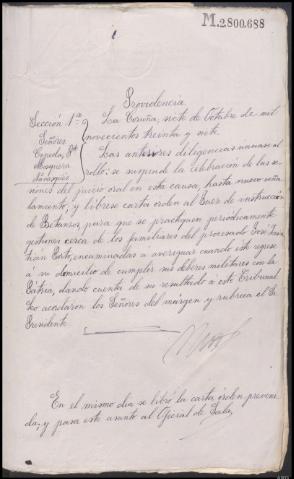 M.2800.688
Providencia
Sección 1.ª La Coruña, siete de Octubre de mil
Señores novecientos treinta y siete.
Cepeda, Pte Las anteriores diligencias unanse al
Mosquera rollo: se suspende la celebración de las se-
siones del juicio oral en esta causa, hasta nuevo seña-
lamiento, y líbrese carta orden al Juez de instrucción
de Betanzos, para que se practiquen periodicamente
gestiones cerca de los familiares del procesado José
encaminadas a averiguar cuando este regrese
á su domicilio de cumplir sus deberes militares con la
Pátria, dando cuenta de su resultado a este Tribunal
Lo acordaron los Señores del margen y rubrica el Sr.
Presidente
En el mismo dia se libró la carta orden preveni-
da, y pasa este asunto al Oficial de Sala,